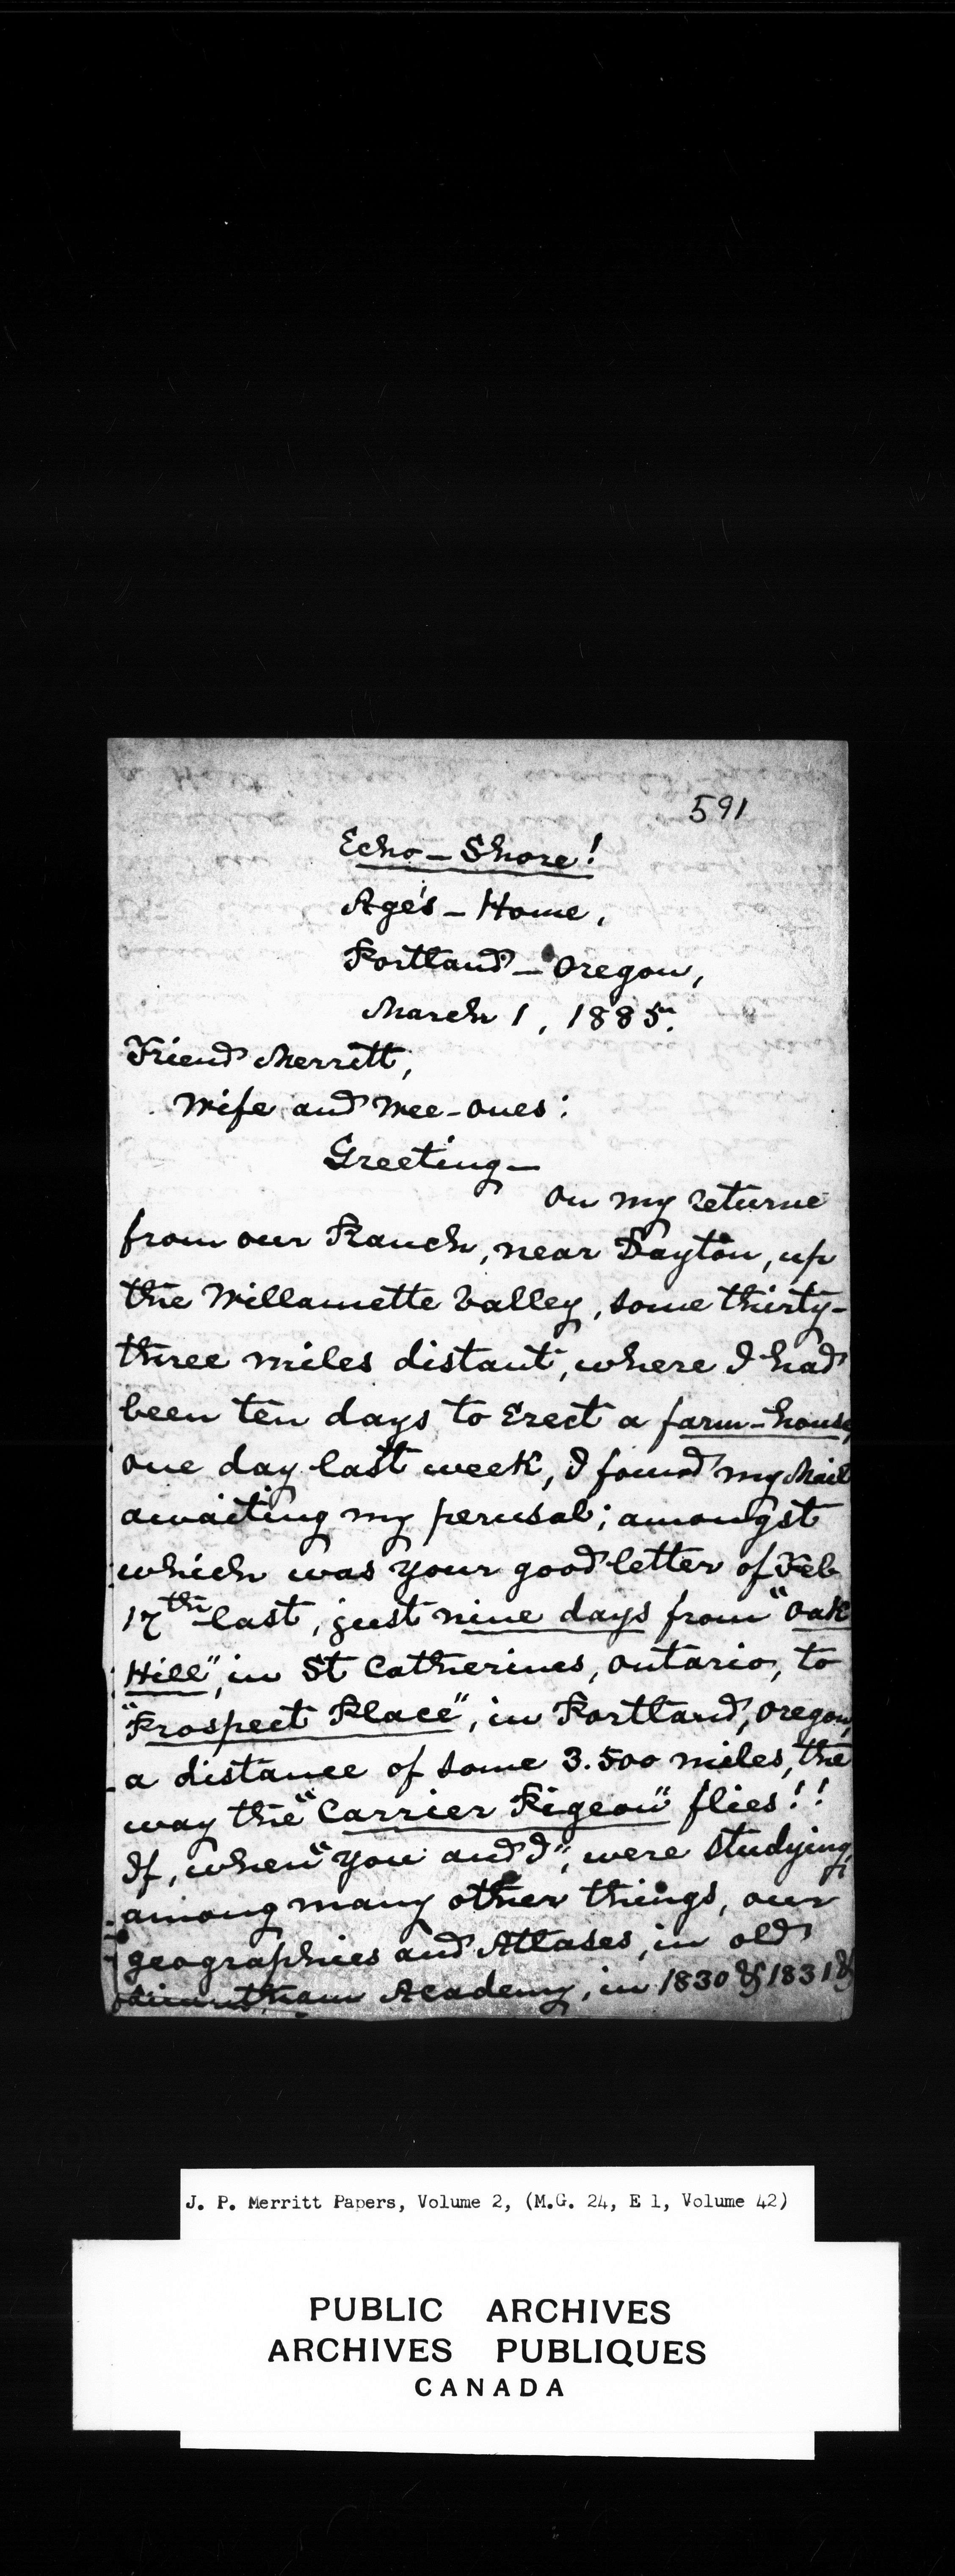 591
Echo - Shore!
Age's - Home,
Portland - Oregon,
March 1, 1885.
Friend Merritt,
Wife and Wee-ones:
Greeting -
On my returne
from our Ranch, near Dayton, up
the Willamette Valley, some thirty-
three miles distant, where I had
been ten days to Erect a farm-house,
one day last week, I found my Mail
awaiting my perusal; amongst
which was your good letter of Feb
17th last, just nine days from "Oak
Hill", in St Catherines, Ontario, to
"Prospect Place", in Portland, Oregon,
a distance of some 3.500 miles, the
way the "Carrier Pigeon" flies!!
If, when "you and I", were studying,
among many other things, our
geographies and Atlases, in old
Academy, in 1830 & 1831 &
J. P. Merritt Papers, Volume 2, (M.G. 24, E 1, Volume 42)
PUBLIC ARCHIVES
ARCHIVES PUBLIQUES
CANADA